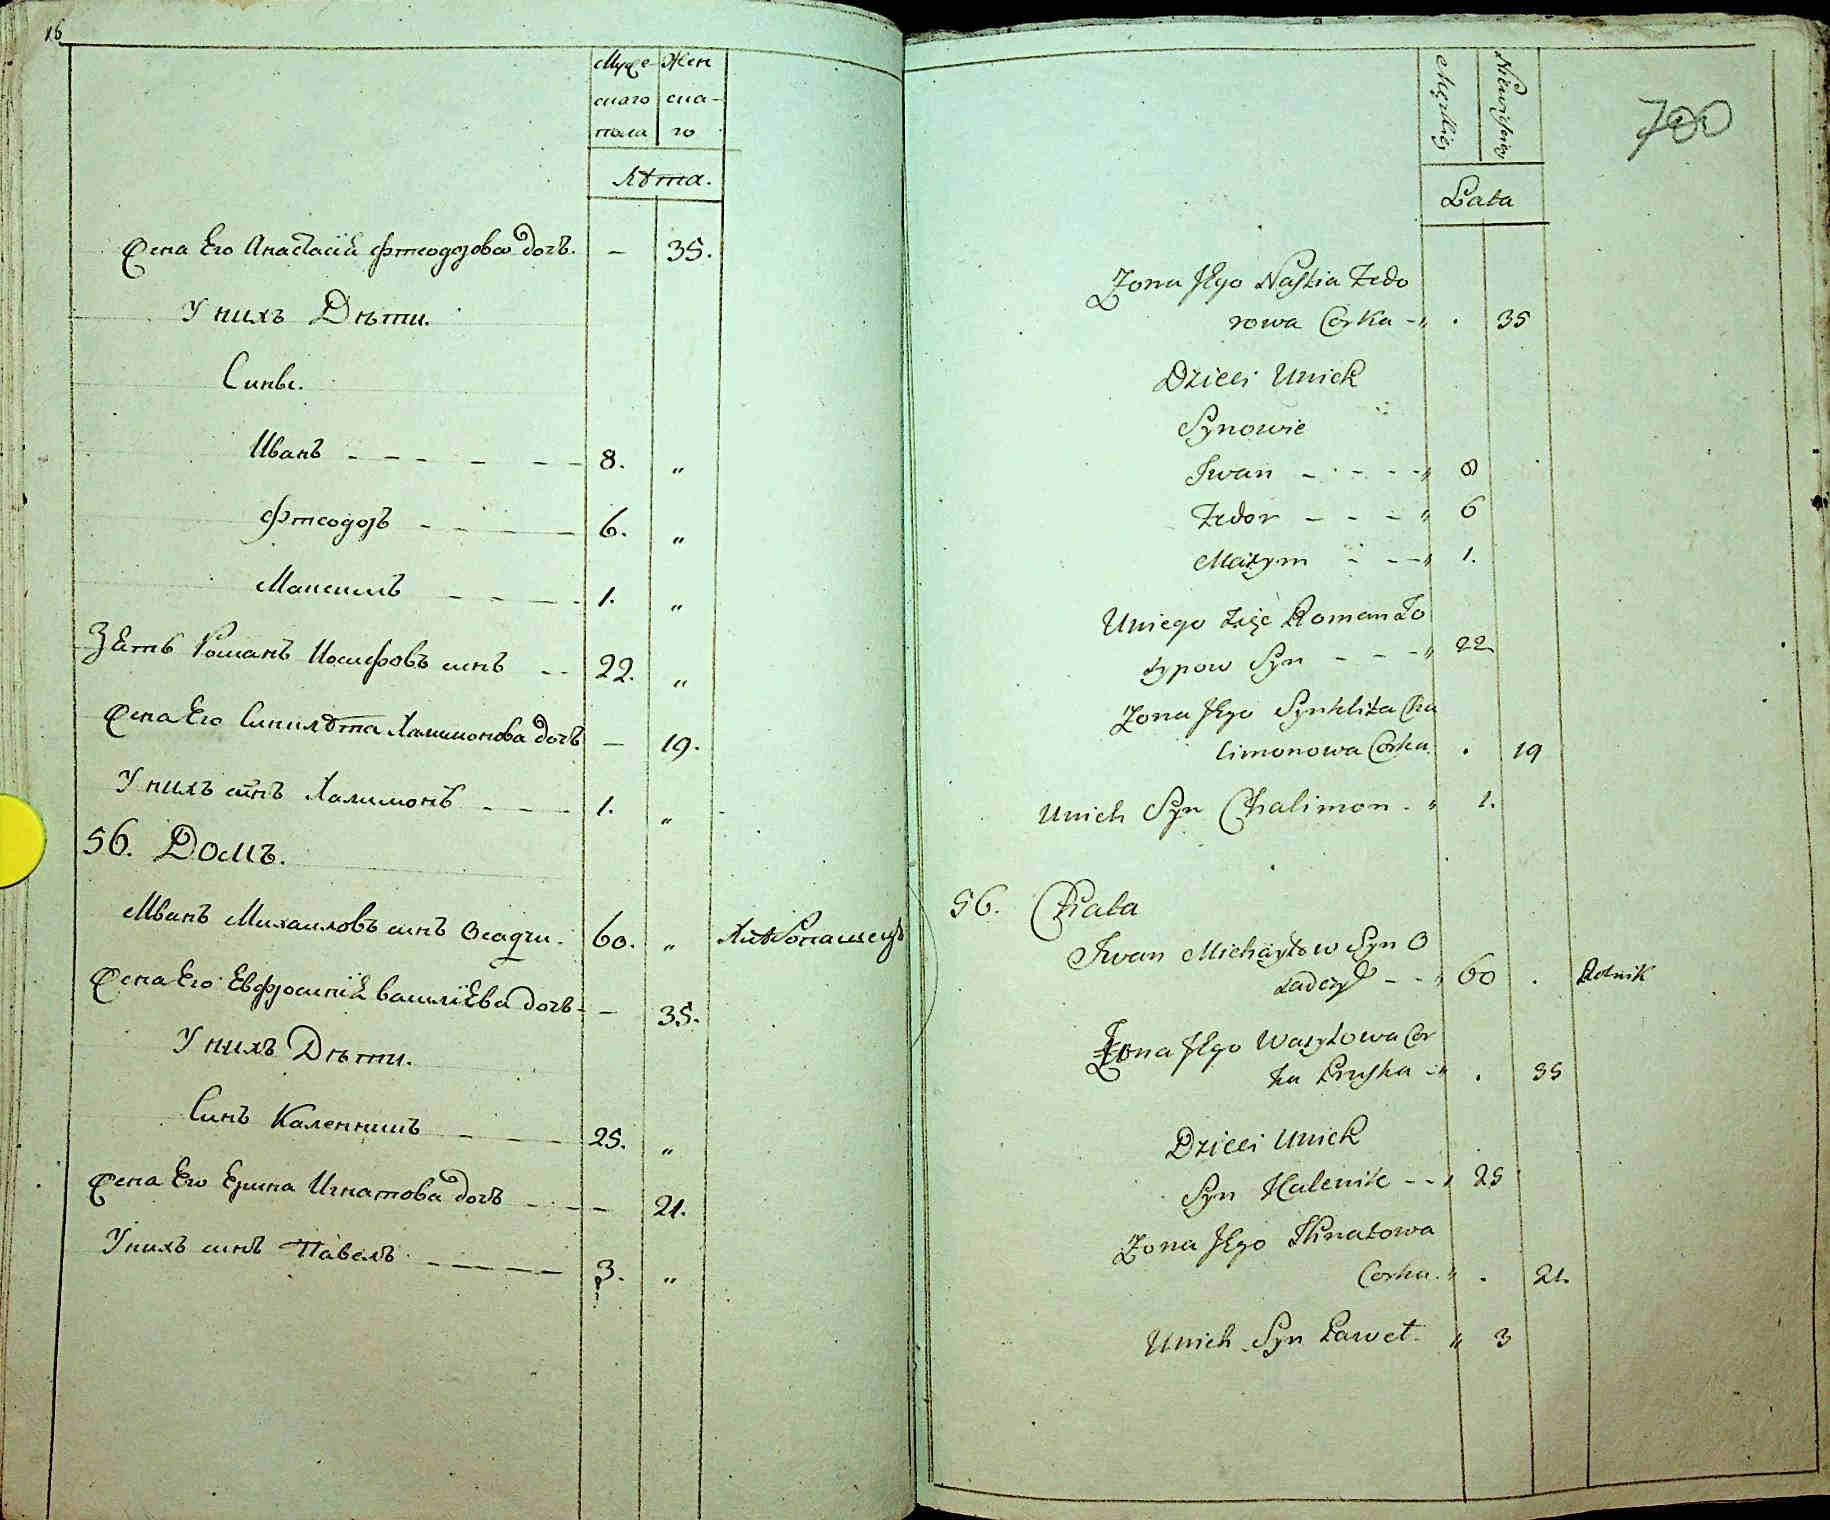 16
Муже Жен
скаго ска-
пола го
Лѣта.
Жена Его Анастасия Фтеодорова дочъ. – 35.
У нихъ Дѣти.
Сины.
Иванъ – – – – – – 8. „
Фтеодоръ – – – – 6. „
Максимъ – – – – 1. „
Зять Романъ Иосифовъ синъ – – 22. „
Жена Его Синклѣта Халимонова дочъ – 19.
У нихъ синъ Халимонъ – – – 1. „
56. Домъ.
Иванъ Михаиловъ синъ Осадчи. 60. „ Хлѣбопашецъ
Жена Его Евфросиния Василиева дочъ – 35.
У нихъ Дѣти.
Синъ Каленникъ – – – 25. „
Жена Его Ерина Игнатова дочъ – – – 21.
У нихъ синъ Павелъ – – – – – 3. „
Męzkiey Niewiesciey
700
Lata
Zona Jego Nastia Fedo
rowa Corka – „ . 35
Dzieci Unich
Synowie
Iwan – – – – „ 8
Fedor – – – „ 6
Maxym – – – „ 1.
Uniego Zięć Roman Jo
zypow Syn – – – „ 22.
Zona Jego Synklita Cha
limonowa Corka . 19
Unich Syn Chalimon – „ 1.
56. Chata
Iwan Michayłow Syn O
sadczy – – „ 60 . Rolnik
Zona Jego Wasylowa Cor
ka Pruska – „ . 35
Dzieci Unich
Syn Kalenik – – „ 25
Zona Jego Hinatowa
Corka „ . 21.
Unich Syn Paweł. „ 3